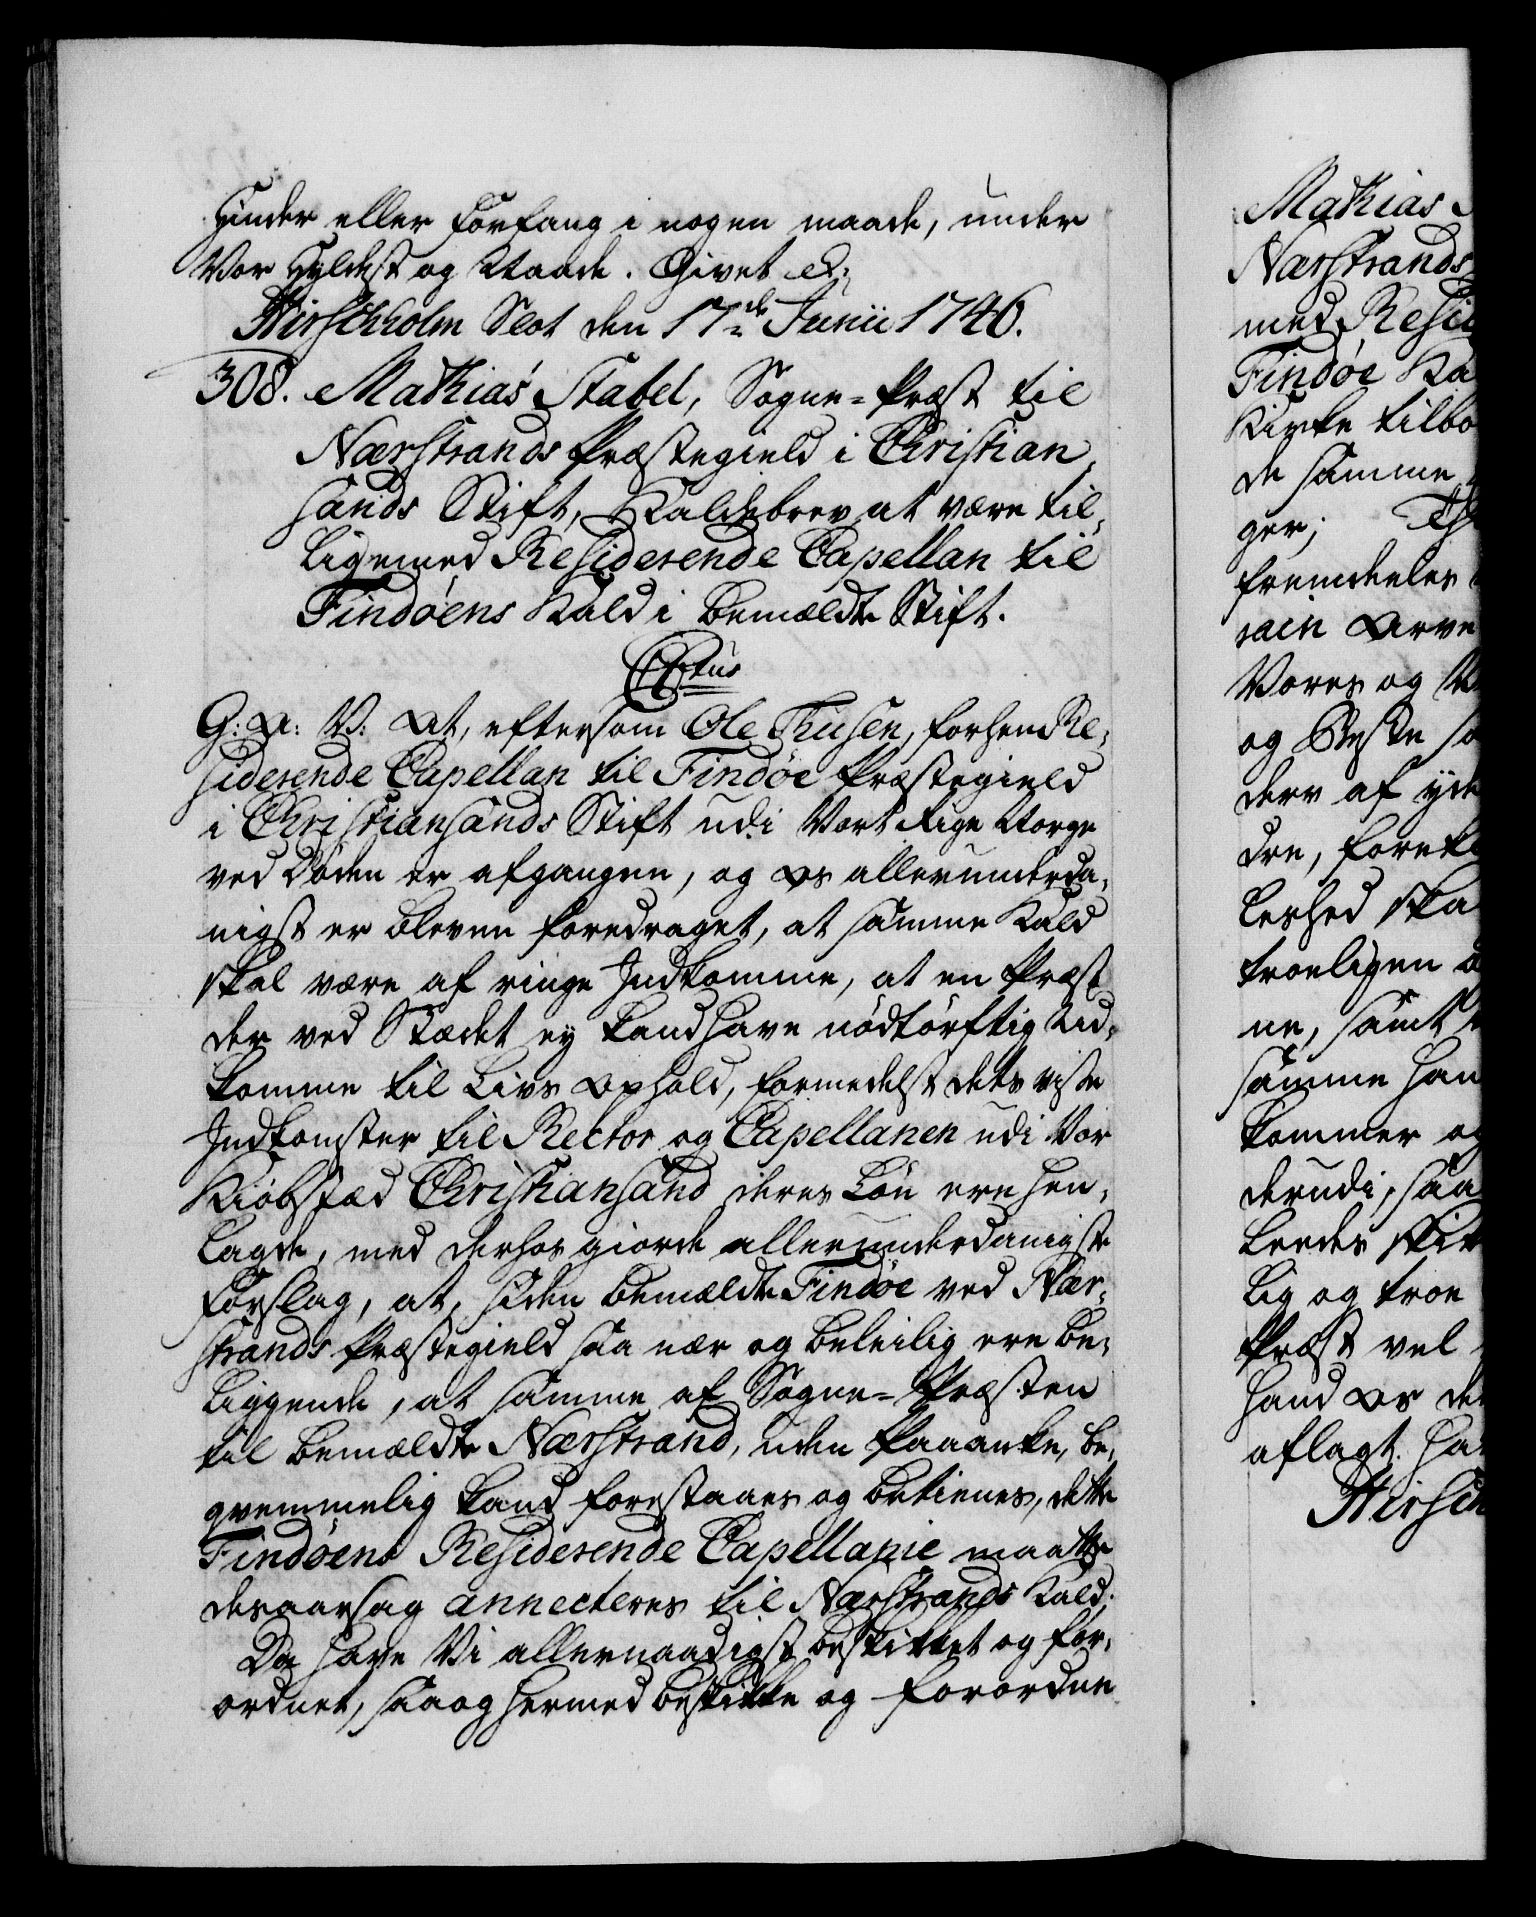 Hinder eller Forfang i nogen maade, under
Vor Hyldest og Naade. Givet &:
Hirschholm Slot den 17de Junii 1746.
308. Mathias Stabel, Sogne-Præst til
Nærstrands Præstegield i Christian,
sands Stift, Kaldsbrev at være til,
ligemed Residerende Capellan til
Findöens Kald i bemældte Stift.
C6tus
G: A: V: At, eftersom Ole Thusen, forhen Re,
siderende Capellan til Findöe Præstegield
i Christiansands Stift udi Vort Rige Norge
ved Döden er afgangen, og Os allerunderda,
nigst er bleven foredraget, at samme Kald
skal være af ringe Indkomme, at en Præst
der ved Stædet ey kand have nödtörftig Ud,
komme til Livs Ophold, formedelst dets visse
Indkomster til Rector og Capellanen udi Vor
Kiöbstæd Christiansand deres Lön ere hen,
lagde, med derhos giorde allerunderdanigste
Forslag, at, siden bemældte Findöe ved Nær,
strands Præstegield saa nær og beleilig ere be,
liggende, at samme af Sogne-Præsten
til bemældte Nærstrand, uden Paaanke, be,
qvemmelig kand forestaaes og betienes, dette
Findöens Residerende Capellanie maatte
desaarsag annecteres til Nærstrands Kald;
Da have Vi allernaadigst beskikket og for,
ordnet, saa og hermed beskikke og forordne
Mathias
Nærstrands
med Resid
Findöe Ka
Kirke tilbo
de samme
ger;
fremdeeles
rain Arve
Vores og
og Beste so
derv af yde
dre, forek
lerhed ska
troeligen
ne, samt
samme han
kommer og
derudi, saa
leedes skik
lig og troe
Præst vel
hand Os de
aflagt. Ha
Hirsch